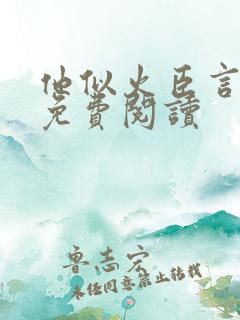 他似火臣言
免費閱讀
鲁志宏
未经同意禁止转载